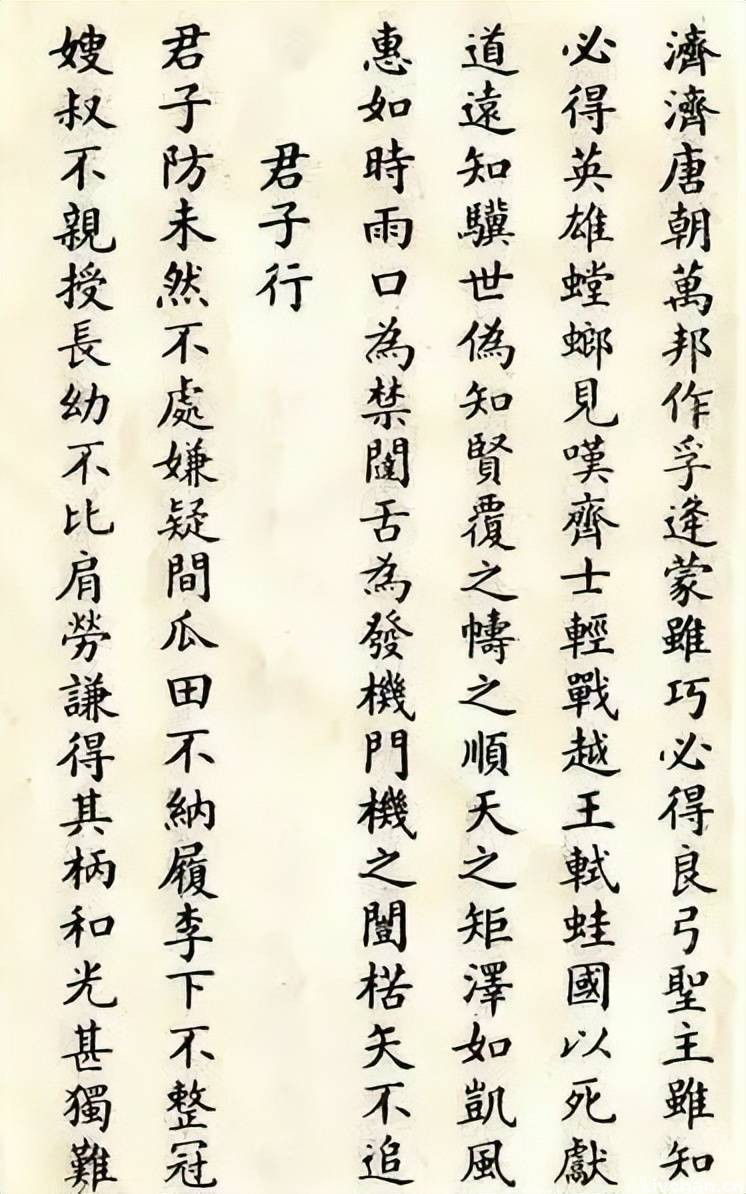 濟濟唐朝萬邦作孚逄蒙雖巧必得良弓聖主雖知
必得英雄螳螂見嘆齊士輕戰越王軾蛙國以死獻
道遠知驥世偽知賢覆之幬之順天之矩澤如凱風
惠如時雨口為禁闥舌為發機門機之闓楛矢不追
君子行
君子防未然不處嫌疑間瓜田不納履李下不整冠
嫂叔不親授長幼不比肩勞謙得其柄和光甚獨難